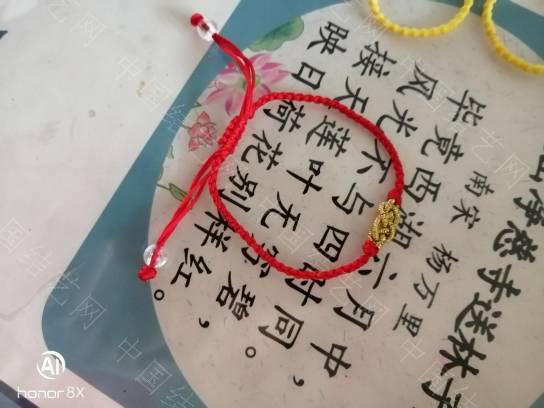 净慈寺送林
南宋 杨万里
毕竟西湖六月中，
风光不与四时同。
接天莲叶无穷碧，
映日荷花别样红。
中国结艺网
AI
honor 8X